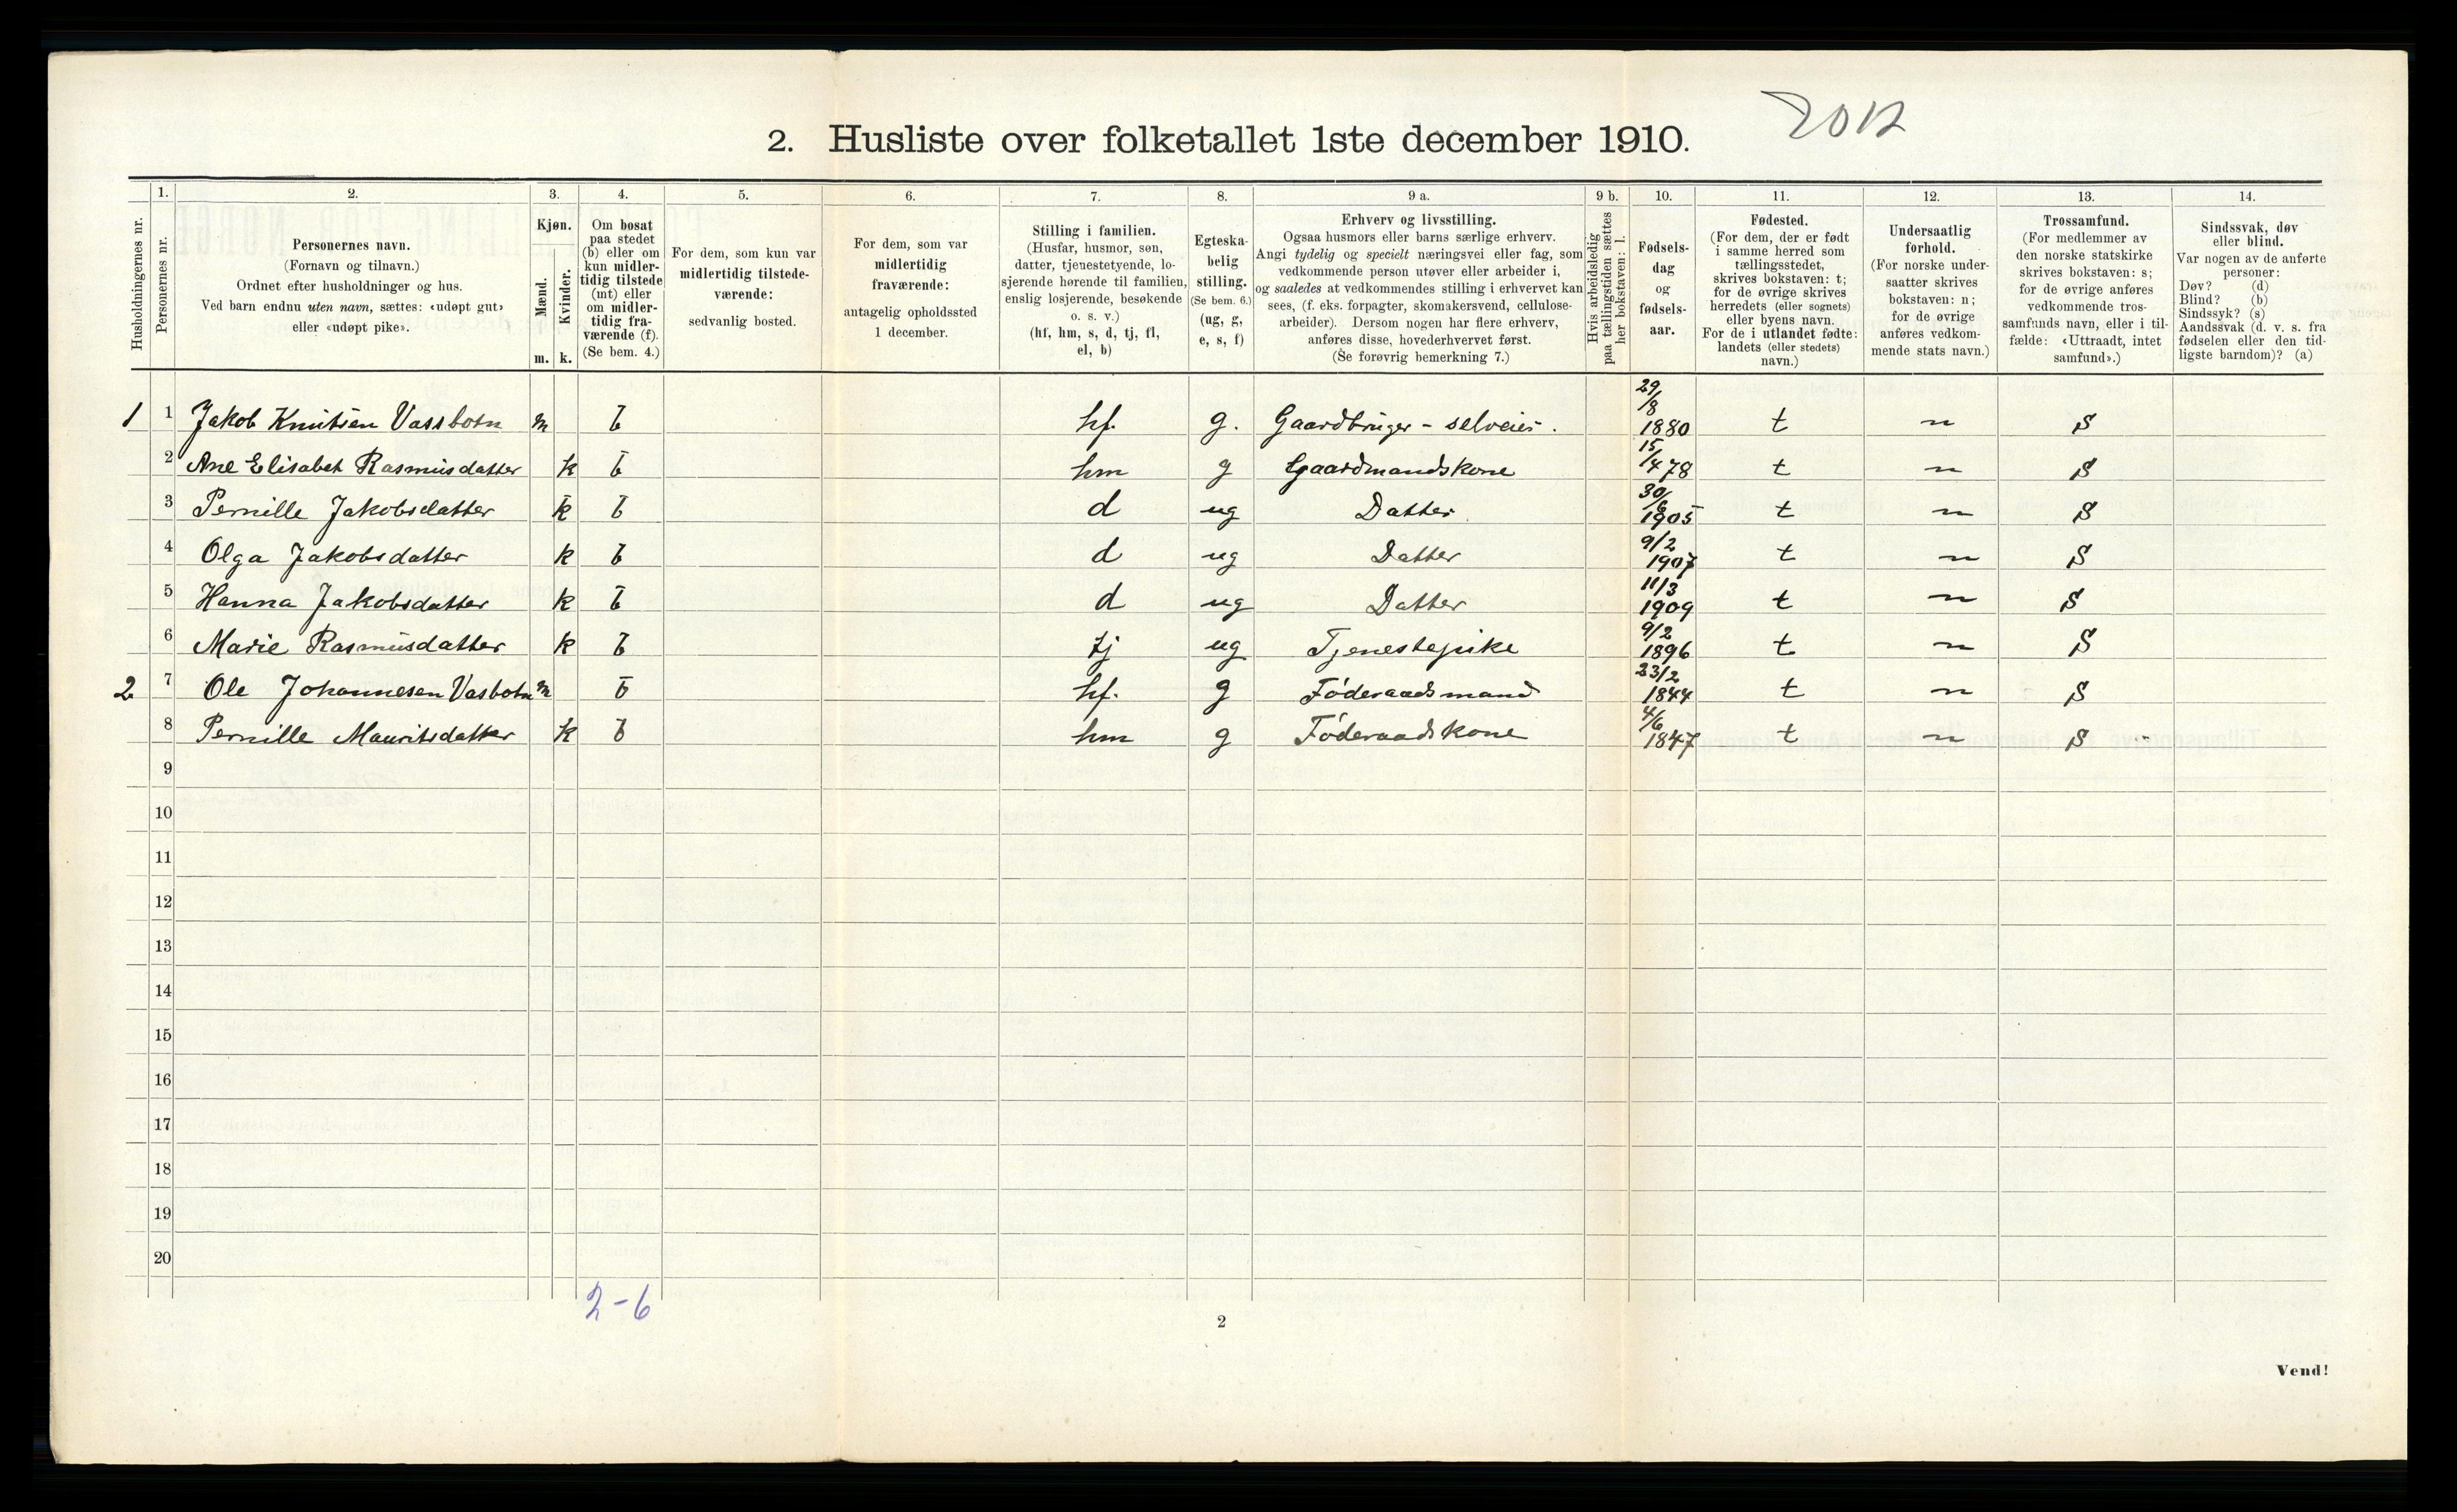 2012
2. Husliste over folketallet 1ste december 1910.
1. 2. 3. 4. 5. 6. 7. 8. 9 a. 9 b. 10. 11. 12. 13. 14.
Husholdningernes nr.
Personernes nr.
Personernes navn.
(Fornavn og tilnavn.)
Ordnet efter husholdninger og hus.
Ved barn endnu uten navn, sættes: «udøpt gut»
eller «udøpt pike».
Kjøn.
Mænd.
Kvinder.
m. k.
Om bosat
paa stedet
(b) eller om
kun midler-
tidig tilstede
(mt) eller
om midler-
tidig fra-
værende (f).
(Se bem. 4.)
For dem, som kun var
midlertidig tilstede-
værende:
sedvanlig bosted.
For dem, som var
midlertidig
fraværende:
antagelig opholdssted
1 december.
Stilling i familien.
(Husfar, husmor, søn,
datter, tjenestetyende, lo-
sjerende hørende til familien,
enslig losjerende, besøkende
o. s. v.)
(hf, hm, s, d, tj, fl,
el, b)
Egteska-
belig
stilling.
(Se bem. 6.)
(ug, g,
e, s, f)
Erhverv og livsstilling.
Ogsaa husmors eller barns særlige erhverv.
Angi tydelig og specielt næringsvei eller fag, som
vedkommende person utøver eller arbeider i,
og saaledes at vedkommendes stilling i erhvervet kan
sees, (f. eks. forpagter, skomakersvend, cellulose-
arbeider). Dersom nogen har flere erhverv,
anføres disse, hovederhvervet først.
(Se forøvrig bemerkning 7.)
Hvis arbeidsledig
paa tællingstiden sættes
her bokstaven: l.
Fødsels-
dag
og
fødsels-
aar.
Fødested.
(For dem, der er født
i samme herred som
tællingsstedet,
skrives bokstaven: t;
for de øvrige skrives
herredets (eller sognets)
eller byens navn.
For de i utlandet fødte:
landets (eller stedets)
navn.)
Undersaatlig
forhold.
(For norske under-
saatter skrives
bokstaven: n;
for de øvrige
anføres vedkom-
mende stats navn.)
Trossamfund.
(For medlemmer av
den norske statskirke
skrives bokstaven: s;
for de øvrige anføres
vedkommende tros-
samfunds navn, eller i til-
fælde: «Uttraadt, intet
samfund».)
Sindssvak, døv
eller blind.
Var nogen av de anførte
personer:
Døv? (d)
Blind? (b)
Sindssyk? (s)
Aandssvak (d. v. s. fra
fødselen eller den tid-
ligste barndom)? (a)
1 1 Jakob Knutsen Vassbotn m b hf. g. Gaardbruger - selveier. 29/8 1880 t n S
2 Ane Elisabet Rasmusdatter k b hm g Gaardmandskone 15/4 78 t n S
3 Pernille Jakobsdatter k b d ug Datter 30/6 1905 t n S
4 Olga Jakobsdatter k b d ug Datter 9/2 1907 t n S
5 Hanna Jakobsdatter k b d ug Datter 11/3 1909 t n S
6 Marie Rasmusdatter k b tj ug Tjenestepike 9/2 1896 t n S
2 7 Ole Johannesen Vasbotn m b hf. g Føderaadsmand 23/2 1844 t n S
8 Pernille Mauritsdatter k b hm g Føderaadskone 4/6 1847 t n S
9
10
11
12
13
14
15
16
17
18
19
20
2-6
2
Vend!